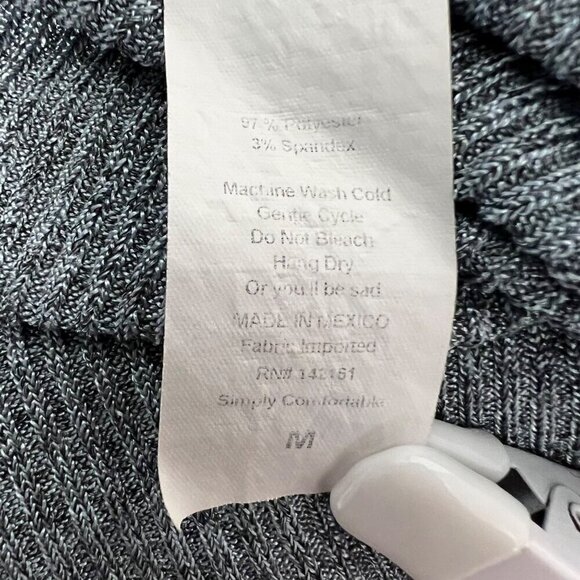 97 % Polyester
3% Spandex
Machine Wash Cold
Gentle Cycle
Do Not Bleach
Hang Dry
Or you'll be sad
MADE IN MEXICO
Fabric Imported
RN# 142161
Simply Comfortable
M